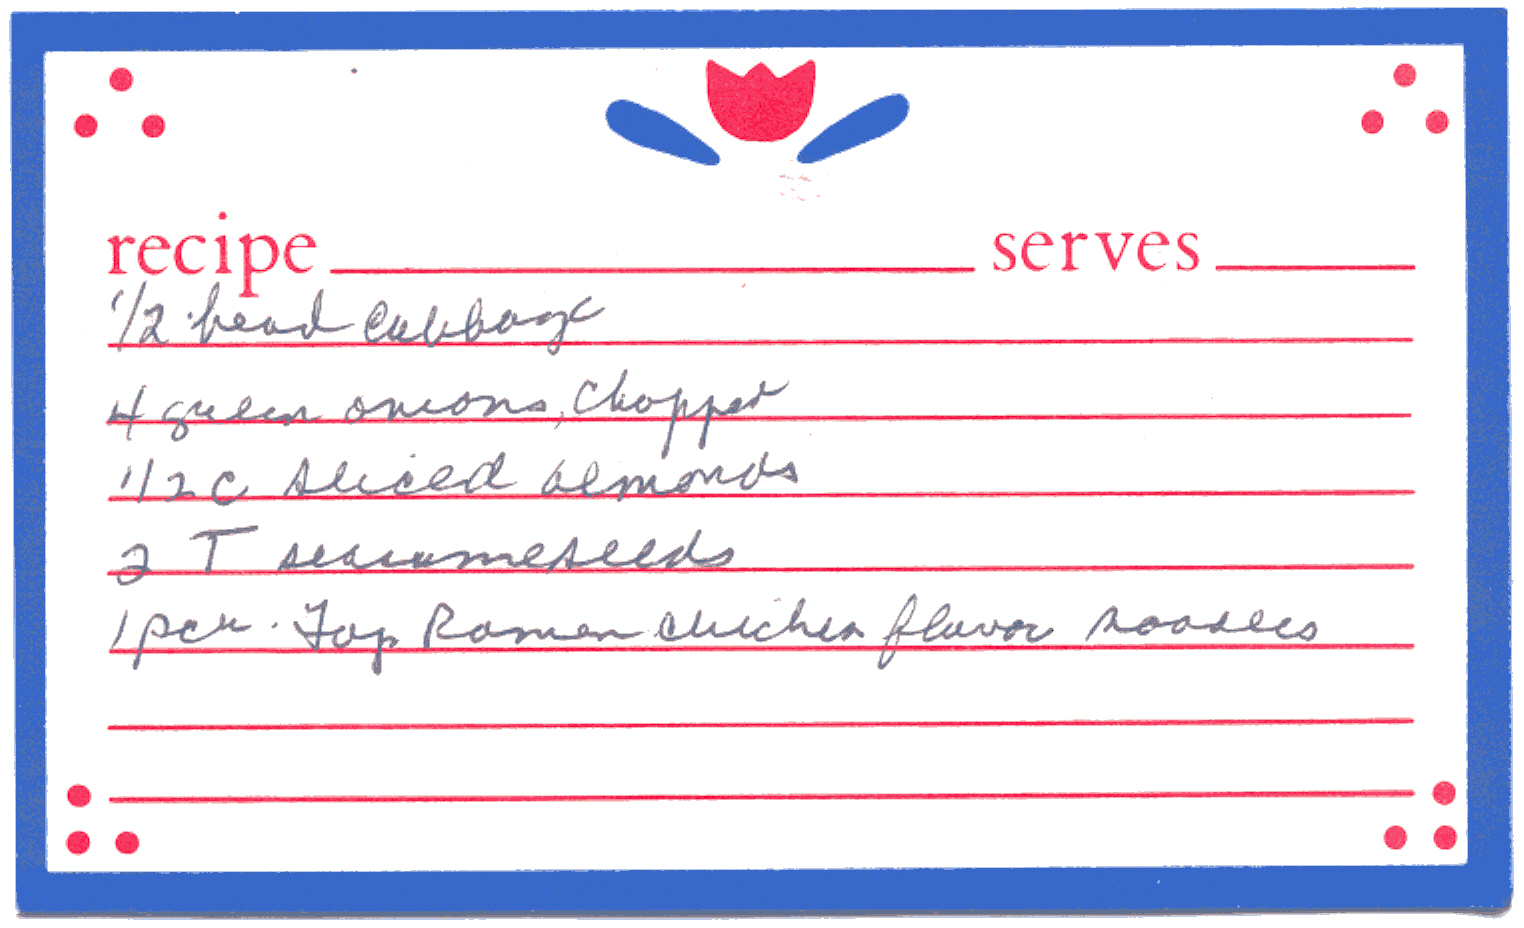 recipe serves
1/2 head Cabbage
4 green onions, Chopped
1/2 C sliced almonds
2 T sesameseeds
1 pck. Top Ramen chicken flavor noodles